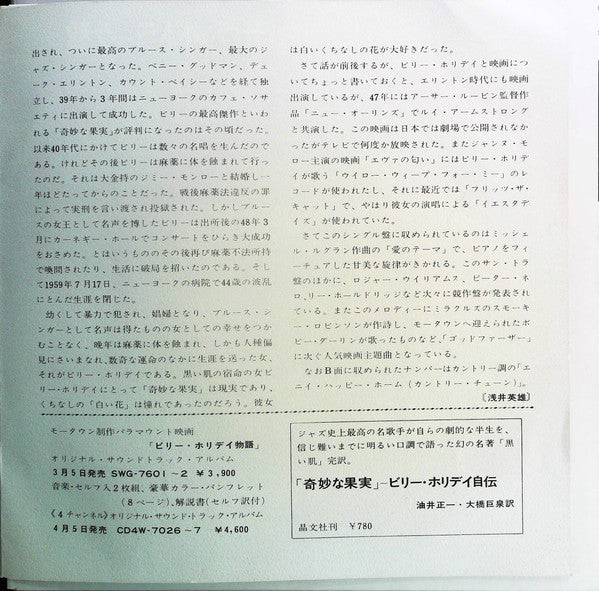 出され、ついに最高のブルース・シンガー、最大のジ
ャズ・シンガーとなった。ベニー・グッドマン、デュ
ーク・エリントン、カウント・ベイシーなどを経て独
立し、39年から3年間はニューヨークのカフェ・ソサ
エティに出演して成功した。ビリーの最高傑作といわ
れる「奇妙な果実」が評判になったのはその頃だった。
以来40年代にかけてビリーは数々の名唱を生んだので
ある。けれどその後ビリーは麻薬に体を蝕まれて行っ
たのだ。それは大金持のジミー・モンローと結婚し一
年ほどたってからのことだった。戦後麻薬法違反の罪
によって実刑を言い渡され投獄された。しかしブルー
スの女王として名声を博したビリーは出所後の48年3
月にカーネギー・ホールでコンサートをひらき大成功
をおさめた。とはいうもののその後再び麻薬不法所持
で喚問されたり、生活に破局を招いたのである。そし
て1959年7月17日、ニューヨークの病院で44歳の波乱
にとんだ生涯を閉じた。
幼くして暴力で犯され、娼婦となり、ブルース・シ
ンガーとして名声は得たものの女としての幸せをつか
むことなく、晩年は麻薬に体を蝕まれ、しかも人種偏
見にさいまなれ、数奇な運命のなかに生涯を送った女、
それがビリー・ホリデイである。黒い肌の宿命の女ビ
リー・ホリデイにとって「奇妙な果実」は現実であり、
くちなしの「白い花」は憧れであったのだろう。彼女
は白いくちなしの花が大好きだった。
さて話が前後するが、ビリー・ホリデイと映画につ
いてちょっと書いておくと、エリントン時代にも映画
出演しているが、47年にはアーサー・ルービン監督作
品「ニュー・オリーンズ」でルイ・アームストロング
と共演した。この映画は日本では劇場で公開されなか
ったがテレビで何度か放映された。またジャンヌ・モ
ロー主演の映画「エヴァの匂い」にはビリー・ホリデ
イが歌う「ウイロー・ウィープ・フォー・ミー」のレ
コードが使われたし、それに最近では「フリッツ・ザ・
キャット」で、やはり彼女の演唱による「イエスタデ
イズ」が使われていた。
さてこのシングル盤に収められているのはミッシェ
ル・ルグラン作曲の「愛のテーマ」で、ピアノをフィ
ーチュアした甘美な旋律がきかれる。このサン・トラ
盤のほかに、ロジャー・ウイリアムス、ピーター・ネ
ロ、リー・ホールドリッジなど次々に競作盤が発表され
ている。またこのメロディーにミラクルズのスモーキ
ー・ロビンソンが作詩し、モータウンへ迎えられたボ
ビー・ダーリンが歌ったものなど、「ゴッドファーザー」
に次ぐ人気映画主題曲となっている。
なおB面に収められたナンバーはカントリー調の「エ
ニイ・ハッピー・ホーム（カントリー・チューン）」。
［浅井英雄］
モータウン制作パラマウント映画
「ビリー・ホリデイ物語」
オリジナル・サウンドトラック・アルバム
3月5日発売 SWG-7601〜2 ￥3,900
音楽・セルフ入2枚組、豪華カラー・パンフレット
（8ページ）、解説書（セルフ訳付）
《4チャンネル》オリジナル・サウンド・トラック・アルバム
4月5日発売 CD4W-7026〜7 ￥4,600
ジャズ史上最高の名歌手が自らの劇的な半生を、
信じ難いまでに明るい口調で語った幻の名著「黒
い肌」完訳。
「奇妙な果実」〜ビリー・ホリデイ自伝
油井正一・大橋巨泉訳
晶文社刊 ￥780